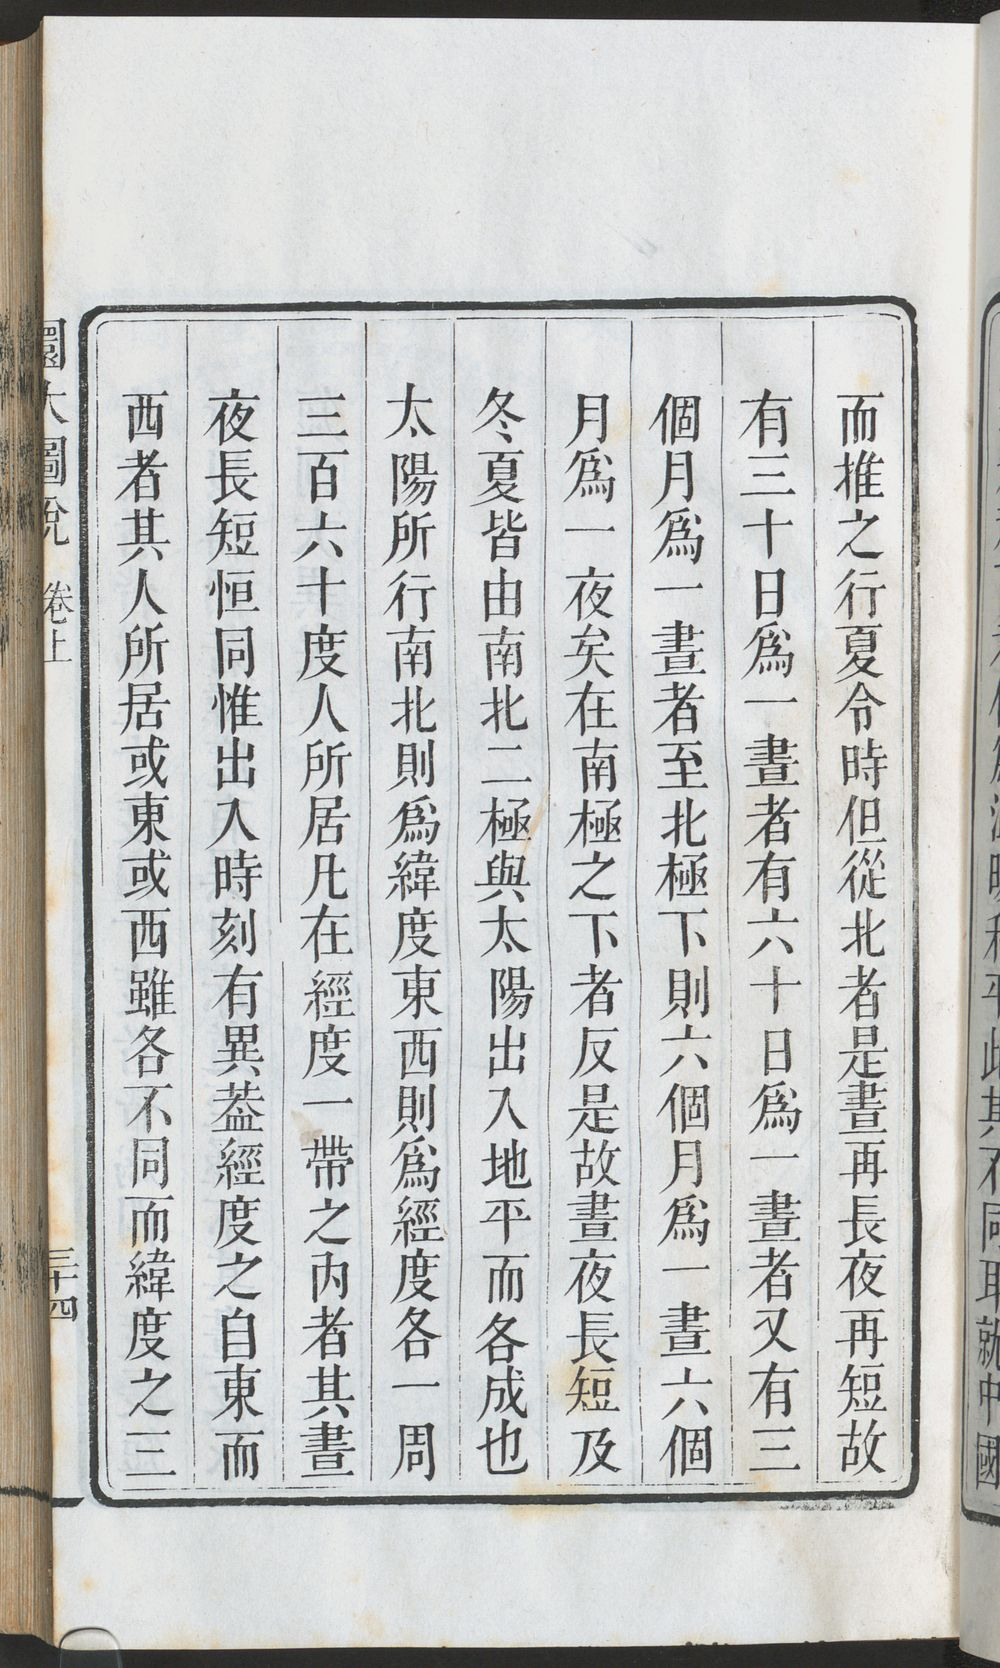 而推之行夏令時但從北者是晝再長夜再短故
有三十日爲一晝者有六十日爲一晝者又有三
個月爲一晝者至北極下則六個月爲一晝六個
月爲一夜矣在南極之下者反是故晝夜長短及
冬夏皆由南北二極與太陽出入地平而各成也
太陽所行南北則爲緯度東西則爲經度各一周
三百六十度人所居凡在經度一帶之內者其晝
夜長短恒同惟出入時刻有異葢經度之自東而
西者其人所居或東或西雖各不同而緯度之三
圜大圖說 卷上
三十四